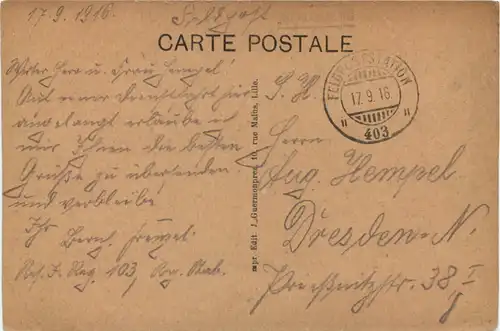 17.9.1916.
Feldpost
CARTE POSTALE
Werter Herr u. Frau Hempel!
Auf einer Dienstfahrt hier
angelangt erlaube ich
mir Ihnen die besten
Grüße zu übersenden
und verbleibe
Ihr
Bernh.
Res. J. Reg. 103, Reg. Stab.
Impr. Edit. J. Guermonprez, 10, rue Malus, Lille.
FELDPOSTSTATION
17.9.16
403
S. H.
Herrn
Aug. Hempel
Dresden-N.
Prießnitzstr. 38 I